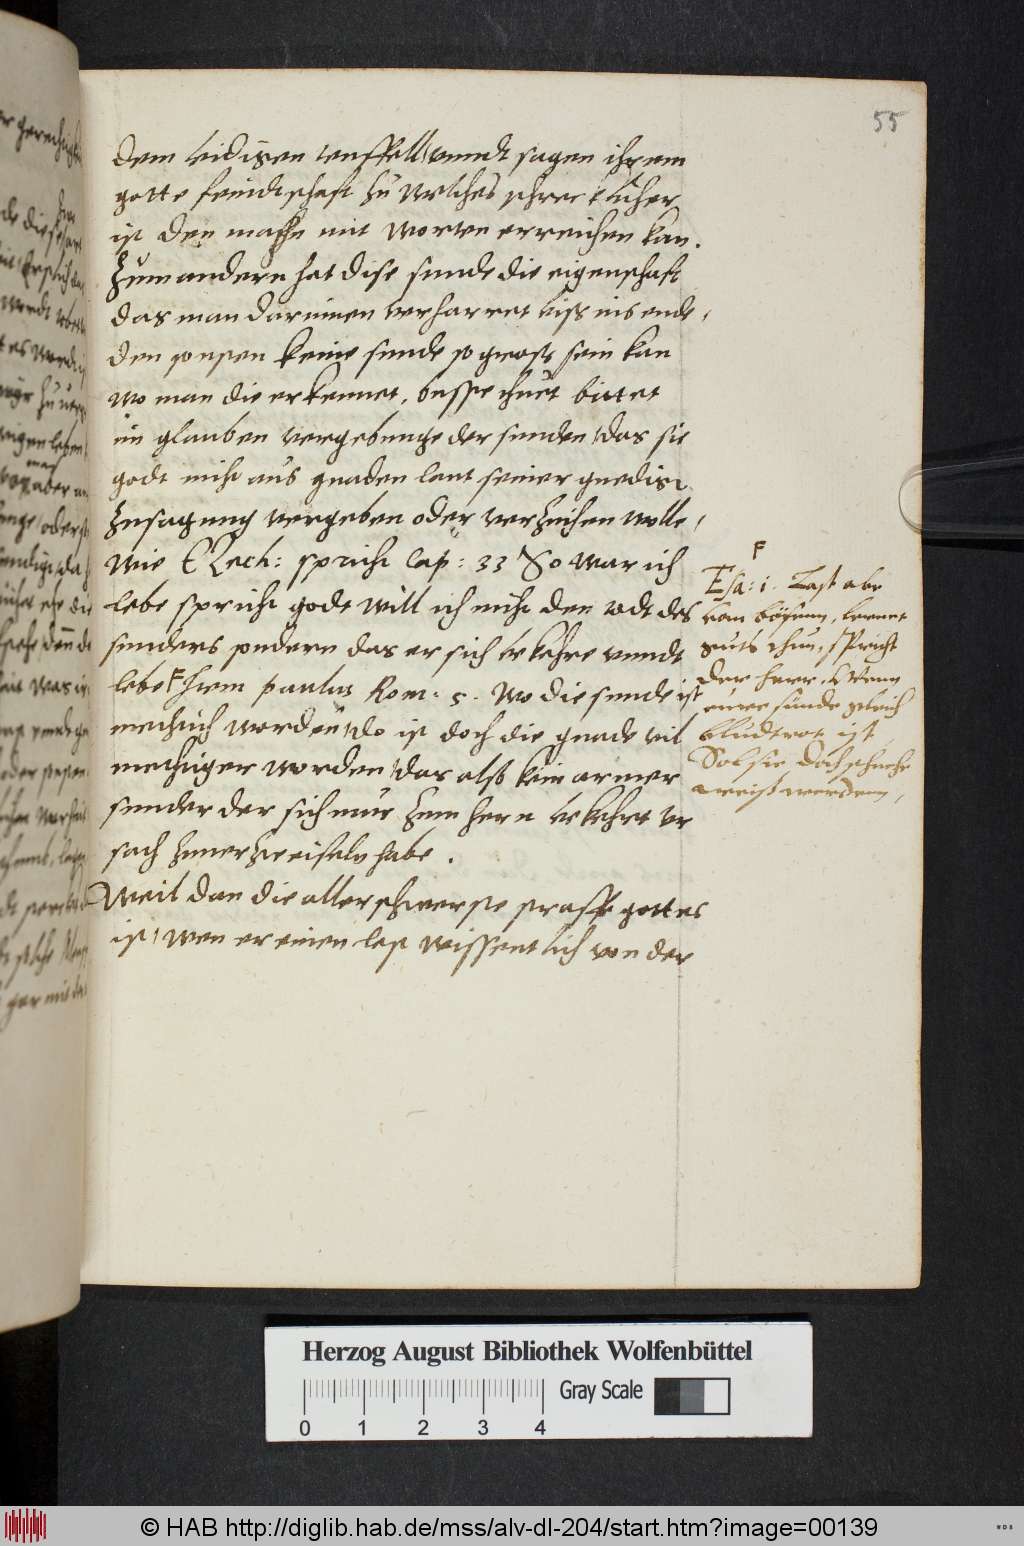 55
dem leidigen teuffell, vnndt sagen ihrem
gotte feindtschaft zu welches schrecklicher
ist den mahn mit worten erreichen kan.
Zum andern hat dise sunde die eigenschaft
das man darinnen verharret biss ins ende,
den sonsten keine sunde so gross sein kan
wo man die erkennet, busse thuet bittet
im glauben vergebunge der sunden, das sie
godt nicht aus gnaden laut seiner gnedigen
zusagung vergeben oder verzeihen wolle,
wie EZech: spricht Cap: 33 So war ich
lebe spricht godt will ich nicht den todt des
sunders sondern das er sich bekehre vnndt
lebe F Item paulus Rom: 5. Wo die sunde ist
mechtich worden, do ist doch die gnade vil
mechtiger worden, das also kein armer
sunder der sich nur zum hern bekehret vr
sach zuuerzweifeln habe.
Weil dan die allerschwerste straffe gottes
ist, wen er einen lest wissentlich von der
F
Esa: 1. Last abe
von bösem, lernet
guts thun, spricht
der herr, Wenn
eüre sünde gleich
bludtrot ist
Sol sie doch schnehe
weiß werden,
Herzog August Bibliothek Wolfenbüttel
Gray Scale
0 1 2 3 4
© HAB http://diglib.hab.de/mss/alv-dl-204/start.htm?image=00139